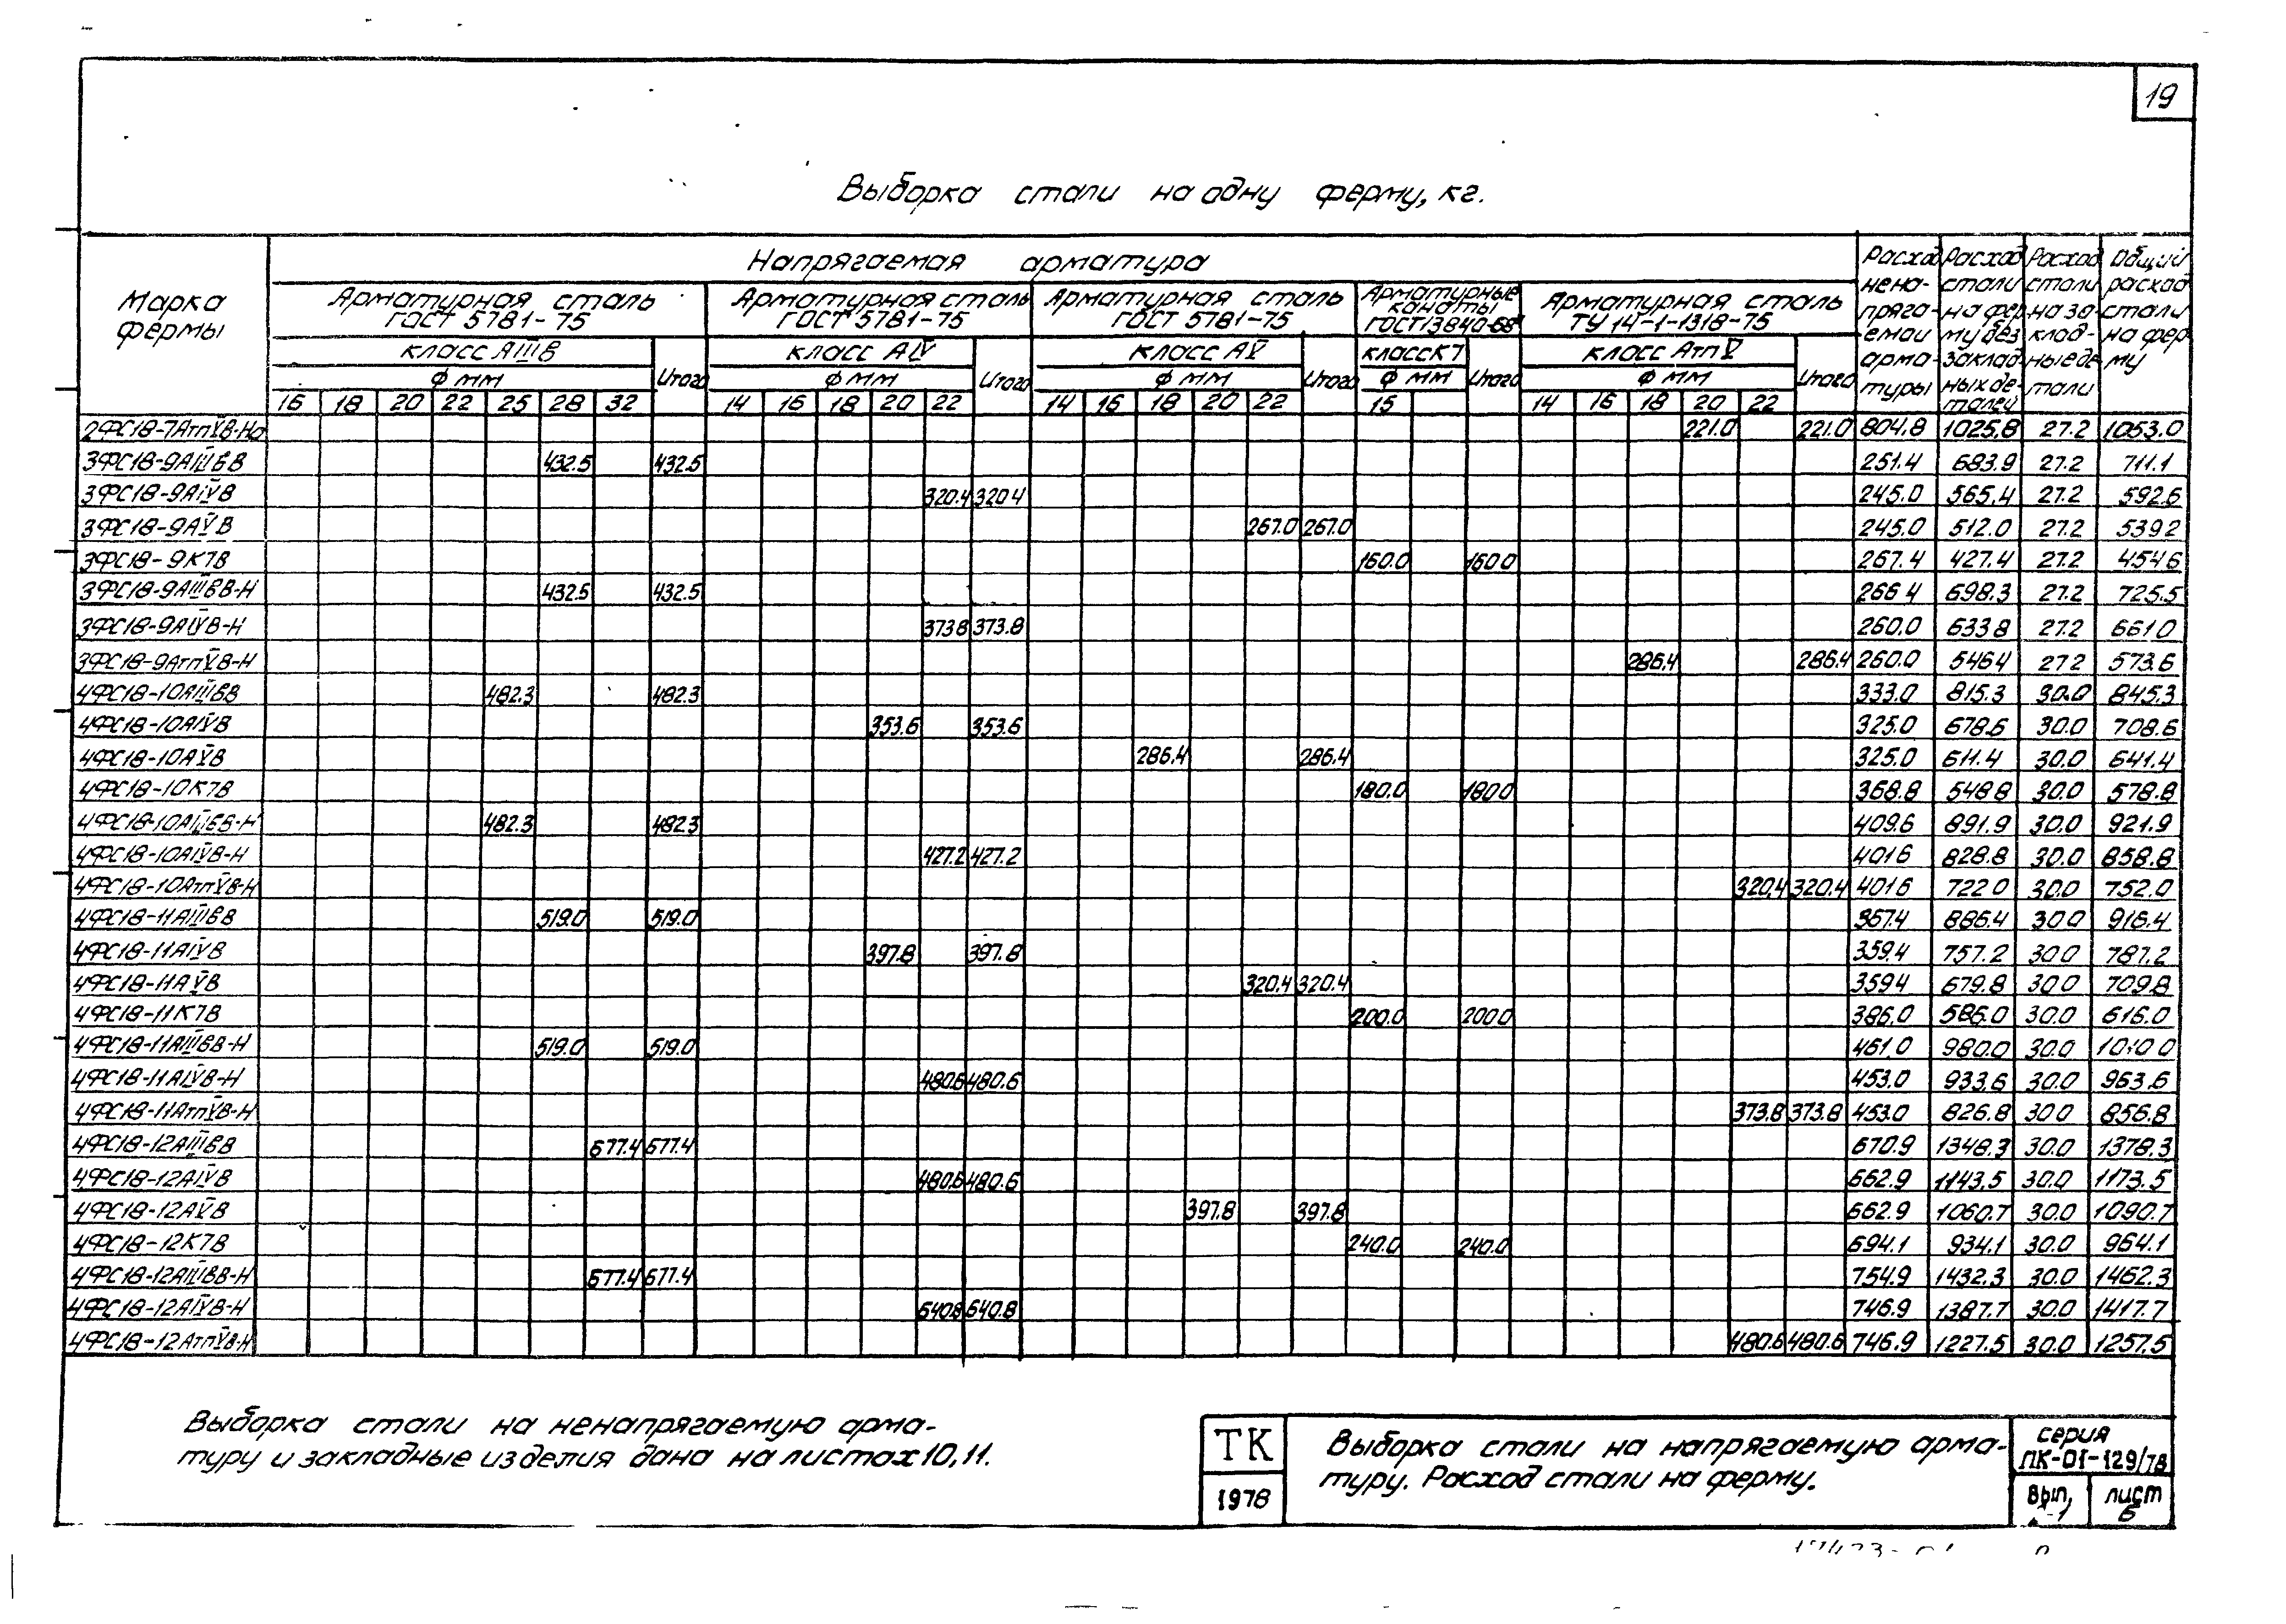 19
Выборка стали на одну ферму, кг.
Марка фермы
Напрягаемая арматура
Расход ненапрягаемой арматуры
Расход стали на ферму без закладных деталей
Расход стали на закладные детали
Общий расход стали на ферму
Арматурная сталь ГОСТ 5781-75
Арматурная сталь ГОСТ 5781-75
Арматурная сталь ГОСТ 5781-75
Арматурные канаты ГОСТ 13840-68
Арматурная сталь ТУ 14-1-1318-75
класс АIIIв Итого класс АIV Итого класс АV Итого класс К7 Итого класс АтпV Итого
Ф мм Ф мм Ф мм Ф мм Ф мм
16 18 20 22 25 28 32 14 16 18 20 22 14 16 18 20 22 15 14 16 18 20 22
2ФС18-7АтпVВ-На 221.0 221.0 804.8 1025.8 27.2 1053.0
3ФС18-9АIIIвВ 432.5 432.5 251.4 683.9 27.2 711.1
3ФС18-9АIVВ 320.4 320.4 245.0 565.4 27.2 592.6
3ФС18-9АVВ 267.0 267.0 245.0 512.0 27.2 539.2
3ФС18-9К7В 160.0 160.0 267.4 427.4 27.2 454.6
3ФС18-9АIIIвВ-Н 432.5 432.5 266.4 698.3 27.2 725.5
3ФС18-9АIVВ-Н 373.8 373.8 260.0 633.8 27.2 661.0
3ФС18-9АтпVВ-Н 286.4 286.4 260.0 546.4 27.2 573.6
4ФС18-10АIIIвВ 482.3 482.3 333.0 815.3 30.0 845.3
4ФС18-10АIVВ 353.6 353.6 325.0 678.6 30.0 708.6
4ФС18-10АVВ 286.4 286.4 325.0 611.4 30.0 641.4
4ФС18-10К7В 180.0 180.0 368.8 548.8 30.0 578.8
4ФС18-10АIIIвВ-Н 482.3 482.3 409.6 891.9 30.0 921.9
4ФС18-10АIVВ-Н 427.2 427.2 401.6 828.8 30.0 858.8
4ФС18-10АтпVВ-Н 320.4 320.4 401.6 722.0 30.0 752.0
4ФС18-11АIIIвВ 519.0 519.0 367.4 886.4 30.0 916.4
4ФС18-11АIVВ 397.8 397.8 359.4 757.2 30.0 787.2
4ФС18-11АVВ 320.4 320.4 359.4 679.8 30.0 709.8
4ФС18-11К7В 200.0 200.0 386.0 586.0 30.0 616.0
4ФС18-11АIIIвВ-Н 519.0 519.0 461.0 980.0 30.0 1010.0
4ФС18-11АIVВ-Н 480.6 480.6 453.0 933.6 30.0 963.6
4ФС18-11АтпVВ-Н 373.8 373.8 453.0 826.8 30.0 856.8
4ФС18-12АIIIвВ 677.4 677.4 670.9 1348.3 30.0 1378.3
4ФС18-12АIVВ 480.6 480.6 662.9 1143.5 30.0 1173.5
4ФС18-12АVВ 397.8 397.8 662.9 1060.7 30.0 1090.7
4ФС18-12К7В 240.0 240.0 694.1 934.1 30.0 964.1
4ФС18-12АIIIвВ-Н 677.4 677.4 754.9 1432.3 30.0 1462.3
4ФС18-12АIVВ-Н 640.8 640.8 746.9 1387.7 30.0 1417.7
4ФС18-12АтпVВ-Н 480.6 480.6 746.9 1227.5 30.0 1257.5
Выборка стали на ненапрягаемую арма-
туру и закладные изделия дана на листах 10, 11.
ТК
1978
Выборка стали на напрягаемую арма-
туру. Расход стали на ферму.
серия
ПК-01-129/78
Вып. лист
-1 6